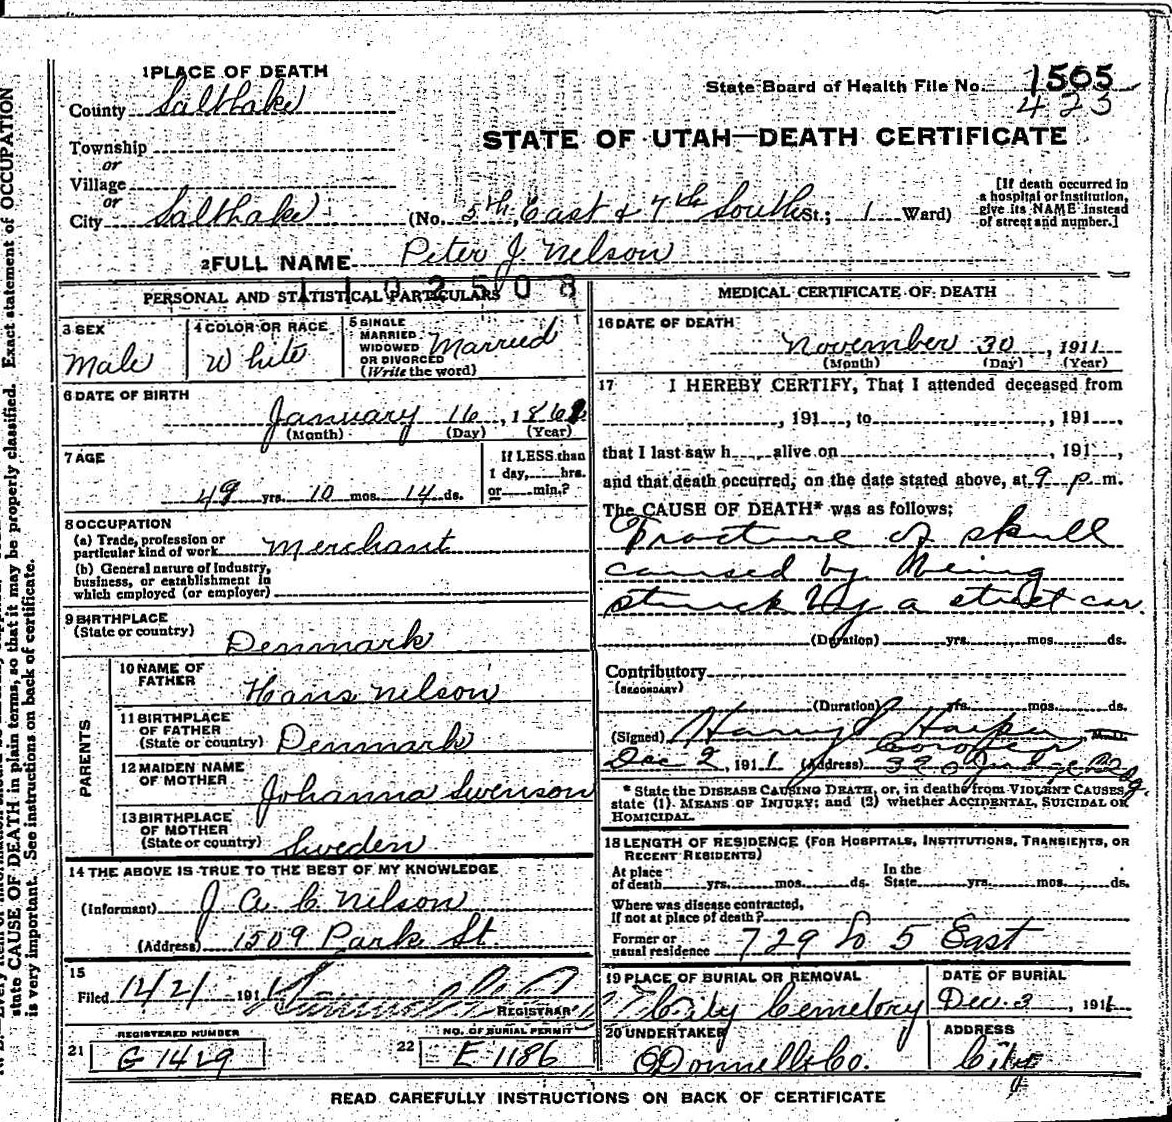 1 PLACE OF DEATH
County Salt Lake
Township
or
Village
or
City Salt Lake (No. 5th East & 7th South St.; 1 Ward)
State Board of Health File No. 1505
423
STATE OF UTAH—DEATH CERTIFICATE
[If death occurred in
a hospital or institution,
give its NAME instead
of street and number.]
2 FULL NAME Peter J. Nelson
1102508
PERSONAL AND STATISTICAL PARTICULARS
3 SEX
Male
4 COLOR OR RACE
White
5 SINGLE
MARRIED
WIDOWED
OR DIVORCED
(Write the word)
Married
6 DATE OF BIRTH
January 16, 1862
(Month) (Day) (Year)
7 AGE
49 yrs. 10 mos. 14 ds.
If LESS than
1 day, hrs.
or min.?
8 OCCUPATION
(a) Trade, profession or
particular kind of work Merchant
(b) General nature of Industry,
business, or establishment in
which employed (or employer)
9 BIRTHPLACE
(State or country)
Denmark
PARENTS
10 NAME OF
FATHER
Hans Nelson
11 BIRTHPLACE
OF FATHER
(State or country) Denmark
12 MAIDEN NAME
OF MOTHER
Johanna Swenson
13 BIRTHPLACE
OF MOTHER
(State or country) Sweden
14 THE ABOVE IS TRUE TO THE BEST OF MY KNOWLEDGE
(Informant) J A C Nelson
(Address) 1509 Park St.
15
Filed 12/2/ 1911
REGISTRAR
REGISTERED NUMBER
21 G 1429
NO. OF BURIAL PERMIT
22 E 1186
MEDICAL CERTIFICATE OF DEATH
16 DATE OF DEATH
November 30, 1911
(Month) (Day) (Year)
17 I HEREBY CERTIFY, That I attended deceased from
, 191 , to , 191 ,
that I last saw h alive on , 191 ,
and that death occurred, on the date stated above, at 9 p. m.
The CAUSE OF DEATH* was as follows:
Fracture of skull
caused by being
struck by a street car.
(Duration) yrs. mos. ds.
Contributory
(SECONDARY)
(Duration) yrs. mos. ds.
(Signed) Harry Harper, M.D.
Coroner
Dec 2, 1911 (Address) 320 Judge Bldg.
* State the DISEASE CAUSING DEATH, or, in deaths from VIOLENT CAUSES,
state (1) MEANS OF INJURY; and (2) whether ACCIDENTAL, SUICIDAL OR
HOMICIDAL.
18 LENGTH OF RESIDENCE (FOR HOSPITALS, INSTITUTIONS, TRANSIENTS, OR
RECENT RESIDENTS)
At place
of death yrs. mos. ds.
In the
State yrs. mos. ds.
Where was disease contracted,
if not at place of death?
Former or
usual residence 729 So 5 East
19 PLACE OF BURIAL OR REMOVAL
City Cemetery
DATE OF BURIAL
Dec. 3, 1911
20 UNDERTAKER
O'Donnell & Co.
ADDRESS
City
READ CAREFULLY INSTRUCTIONS ON BACK OF CERTIFICATE
state CAUSE OF DEATH in plain terms, so that it may be properly classified. Exact statement of OCCUPATION
is very important. See instructions on back of certificate.